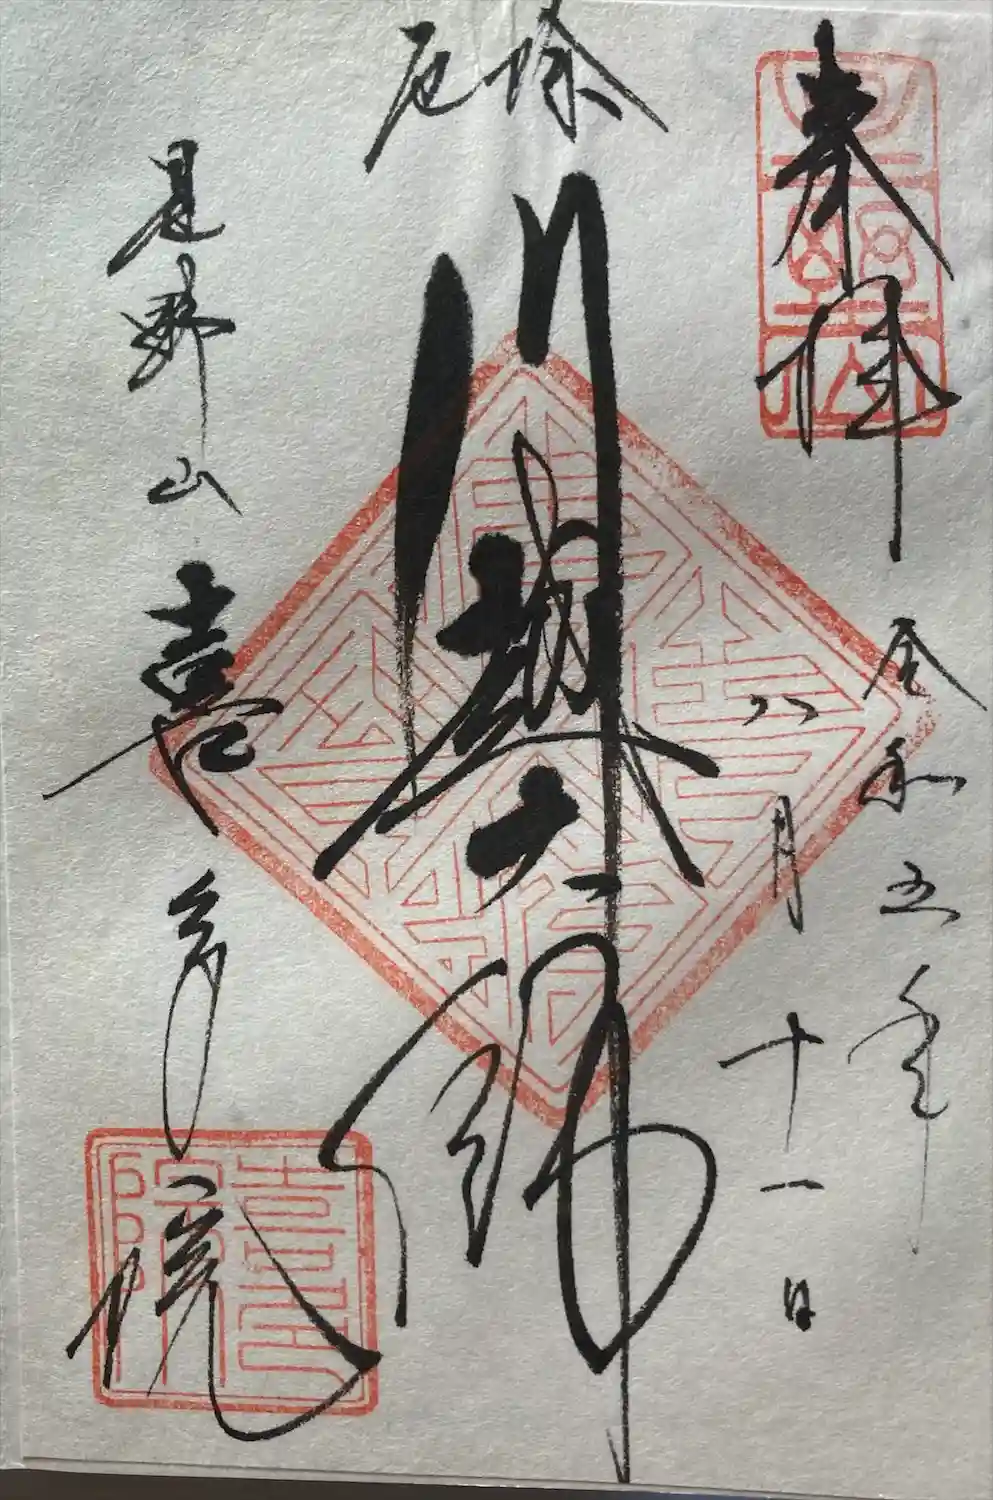 奉拝
令和五年
八月十一日
厄除
川越大師
星野山
喜多院
喜多院